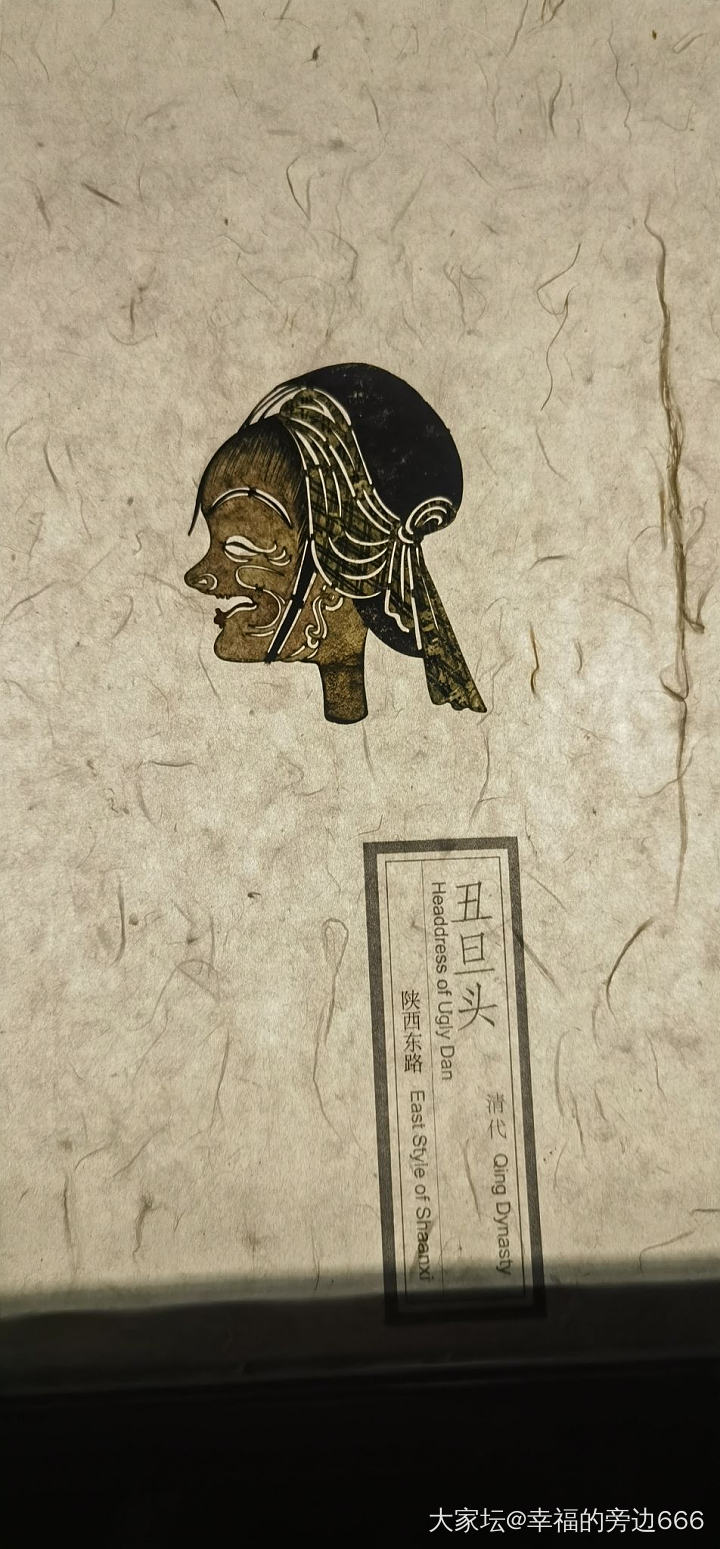 丑旦头 清代 Qing Dynasty
Headdress of Ugly Dan
陕西东路 East Style of Shaanxi
大家坛@幸福的旁边666